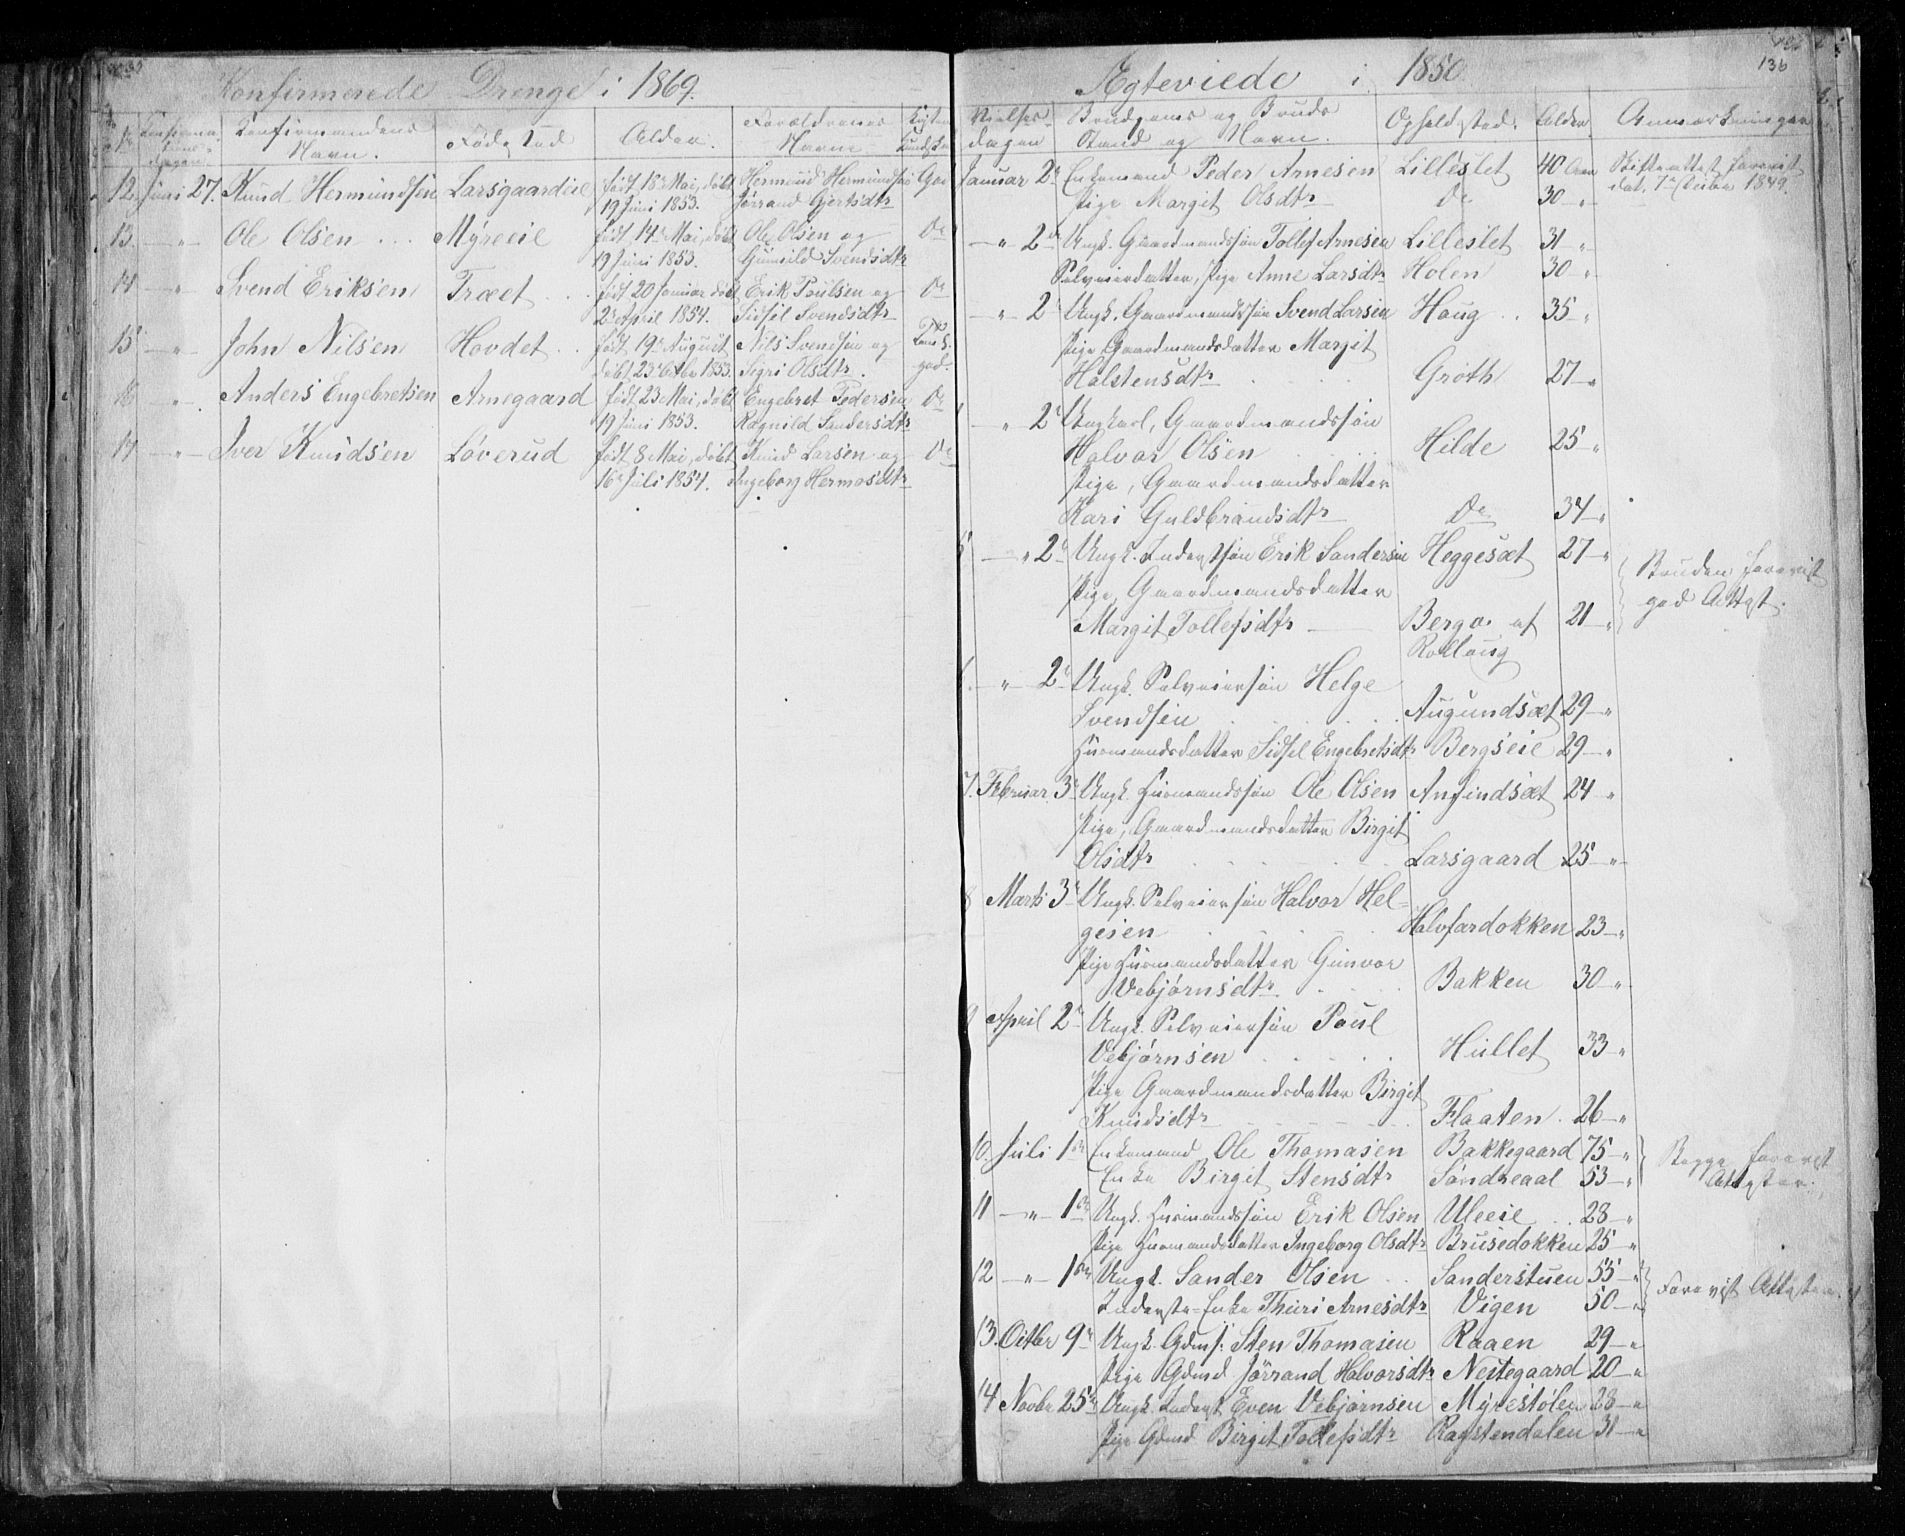 Konfirmerede Drenge i 1869.
No Konfirmations dagen. Konfirmandens Navn. Fødested Alder. Forældrenes Navne
12. Juni 27. Knud Hermundsen Larsgaardeie født 18de Mai, døbt Hermund Hermundsen God
19 Juni 1853. Jørrand Gjertsdtr
13. —"— Ole Olsen Myreeie født 14de Mai, døbt Ole Olsen og Do
19 Juni 1853. Gunild Svendsdtr
14 —"— Svend Eriksen Træet født 20 Januar døbt Erik Poulsen og Do
2den April 1854. Sidsil Svendsdtr
15 —"— John Nilsen Hovdet født 19de August Nils Svendsen og
døbt 23 Octbr 1853. Sigri Olsdtr. god.
16 " Anders Engebretsen Arnegaard født 23 Mai, døbt Engebret Pedersen Do
19 Juni 1853. Ragnild Sandersdtr
17 —"— Iver Knudsen Løverud født 8 Mai, døbt Knud Larsen og Do
16de Juli 1854. Ingeborg Hermosdtr
136
Ægteviede i 1850.
Vielses dagen Brudgoms og Bruds Stand og Navn. Opholdsted. Alder Anmærkninger
Januar 2den Enkemand Peder Arnesen Lilleslet 40 Aar Skifteattest forevist
Pige Margit Olsdtr Do 30 " dat. 7de Octbr 1849.
—"— 2den Ungk. Gaardmandssøn Tollef Arnesen Lilleslet 31 "
Selveierdatter, Pige Anne Larsdtr Holen 30 "
—"— 2den Ungk. Gaardmandssøn Svend Larsen Haug 35 "
Pige Gaardmandsdatter Margit
Halstensdtr Groth 27 "
" 2den Ungkarl, Gaardmandssøn
Halvor Olsen Hilde 25 "
Pige, Gaardmandsdatter
Kari Guldbrandsdtr Do 34 "
5 —"— 2den Ungk. Inderstsøn Erik Sandersen Heggesæt 27 " Bruden forevist
Pige, Gaardmandsdatter god Attest.
Margit Tollefsdtr Bergo. af 21 "
Rollaug
6. —"— 2den Ungk. Selveiersøn Helge
Svendsen Augundsæt 29 "
Husmandsdatter Sidsel Engebretsdtr Bergseie 29 "
7. Februar 3die Ungk. Husmandssøn Ole Olsen Anfindsæt 24 "
Pige, Gaardmandsdatter Birgit
Olsdtr Larsgaard 25 "
8 Marts 3die Ungk. Selveiersøn Halvor Hel=
gesen Halvfardokken 23 "
Pige Husmandsdatter Gunvor
Vebjørnsdtr Bakken 30 "
9 April 2den Ungk. Selveiersøn Poul
Vebjørnsen Hullet 33 "
Pige Gaardmandsdatter Birgit
Knudsdtr Flaaten 26 "
10. Juli 1ste Enkemand Ole Thomasen Bakkegaard 75 " Begge forevist
Enke Birgit Stensdtr Søndreaal 53 " Attester.
11 —"— 1ste Ungk. Husmandssøn Erik Olsen Uleeie 28 "
Pige Husmandsdatter Ingeborg Olsdtr Brusedokken 25 "
12 —"— 1ste Ungk. Sander Olsen Sanderstuen 55 " Forevist Attester.
Inderste-Enke Thuri Arnesdtr Vigen 50 "
13. Octbr 9de Ungk. Gdms: Sten Thomasen Raaen 29 "
Pige Gdmd Jørrand Halvorsdtr Nestegaard 20 "
14 Novbr 25de Ungk. Inderst Even Vebjørnsen Myrestølen 28 "
Pige Gdmd Birgit Tollefsdtr Ragstendalen 31 "